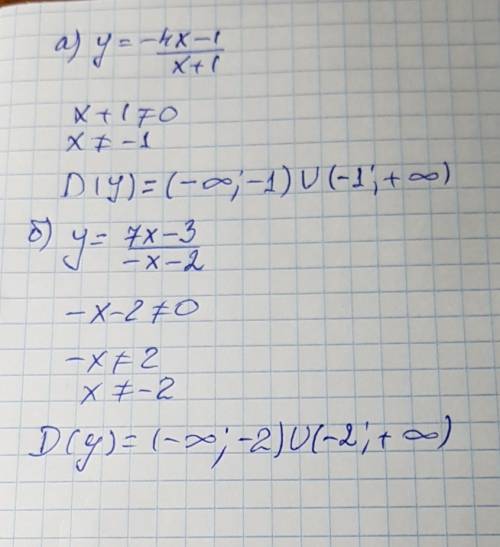 а) y = -4x-1/x+1
x+1≠0
x≠-1
D(y)=(-∞;-1)∪(-1;+∞)
б) y = 7x-3/-x-2
-x-2≠0
-x≠2
x≠-2
D(y)=(-∞;-2)∪(-2;+∞)